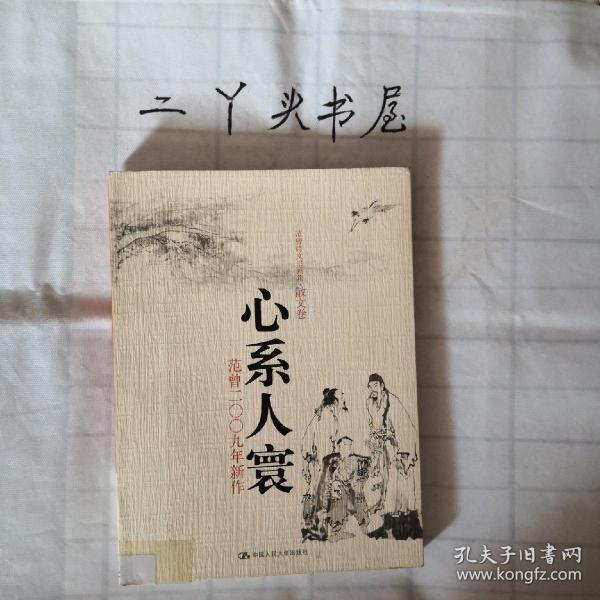 二丫头书屋
散文卷
心系人寰
范曾二〇〇九年新作
中国人民大学出版社
孔夫子旧书网
www.kongfz.com